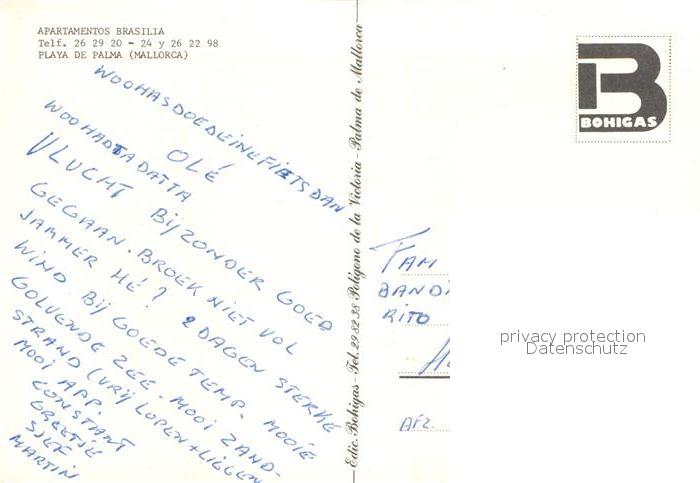 APARTAMENTOS BRASILIA
Telf. 26 29 20 - 24 y 26 22 98
PLAYA DE PALMA (MALLORCA)
WOOHASDOEDEINEFIETSDAN
WOOHADTADATTA
OLÉ
VLUCHT BIJZONDER GOED
GEGAAN. BROEK NIET VOL
JAMMER HÉ? 2 DAGEN STERKE
WIND BIJ GOEDE TEMP. MOOIE
GOLVENDE ZEE. MOOI ZAND-
STRAND (VRIJ LOPEN + LIGGEN
MOOI APP.
CONSTANT
GREETJE
SJEF
MARTIN
Edic. Bohigas - Tel. 29 82 38 Polígono de la Victoria - Palma de Mallorca
B
BOHIGAS
FAM
BANDI
RITO
privacy protection
Datenschutz
AFZ.